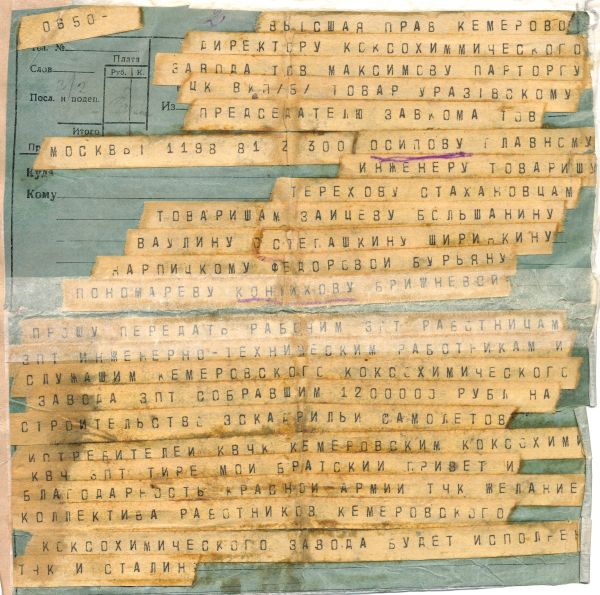 0650-
ВЫСШАЯ ПРАВ КЕМЕРОВО
Тел. №
ДИРЕКТОРУ КОКСОХИММИЧЕСКОГО
Плата
Слов
Руб. К.
ЗАВОДА ТОВ МАКСИМОВУ ПАРТОРГУ
Посл. и подеп.
Из
ЦК ВКП/Б/ ТОВАР УРАЗОВСКОМУ
ПРЕДСЕДАТЕЛЮ ЗАВКОМА ТОВ
Итого
МОСКВЫ 1198 81 2 300 ОСИПОВУ ГЛАВНОМУ
Куда
ИНЖЕНЕРУ ТОВАРИЩУ
Кому
ТЕРЕХОВУ СТАХАНОВЦАМ
ТОВАРИЩАМ ЗАЙЦЕВУ БОЛЬШАНИНУ
ВАУЛИНУ СТЕПАШКИНУ ШИРИНКИНУ
КАРПИЦКОМУ ФЕДОРОВОЙ БУРЬЯНУ
ПОНОМАРЕВУ КОНЮХОВУ БРИЖНЕВОЙ
ПРОШУ ПЕРЕДАТЬ РАБОЧИМ ЗПТ РАБОТНИЦАМ
ЗПТ ИНЖЕНЕРНО-ТЕХНИЧЕСКИМ РАБОТНИКАМ И
СЛУЖАЩИМ КЕМЕРОВСКОГО КОКСОХИМИЧЕСКОГО
ЗАВОДА ЗПТ СОБРАВШИМ 1200000 РУБЛ НА
СТРОИТЕЛЬСТВО ЭСКАДРИЛЬИ САМОЛЕТОВ
ИСТРЕБИТЕЛЕЙ КВЧК КЕМЕРОВСКИМ КОКСОХИМИ
КВЧ ЗПТ ТИРЕ МОЙ БРАТСКИЙ ПРИВЕТ И
БЛАГОДАРНОСТЬ КРАСНОЙ АРМИИ ТЧК ЖЕЛАНИЕ
КОЛЛЕКТИВА РАБОТНИКОВ КЕМЕРОВСКОГО
КОКСОХИМИЧЕСКОГО ЗАВОДА БУДЕТ ИСПОЛНЕН
ТЧК И СТАЛИН